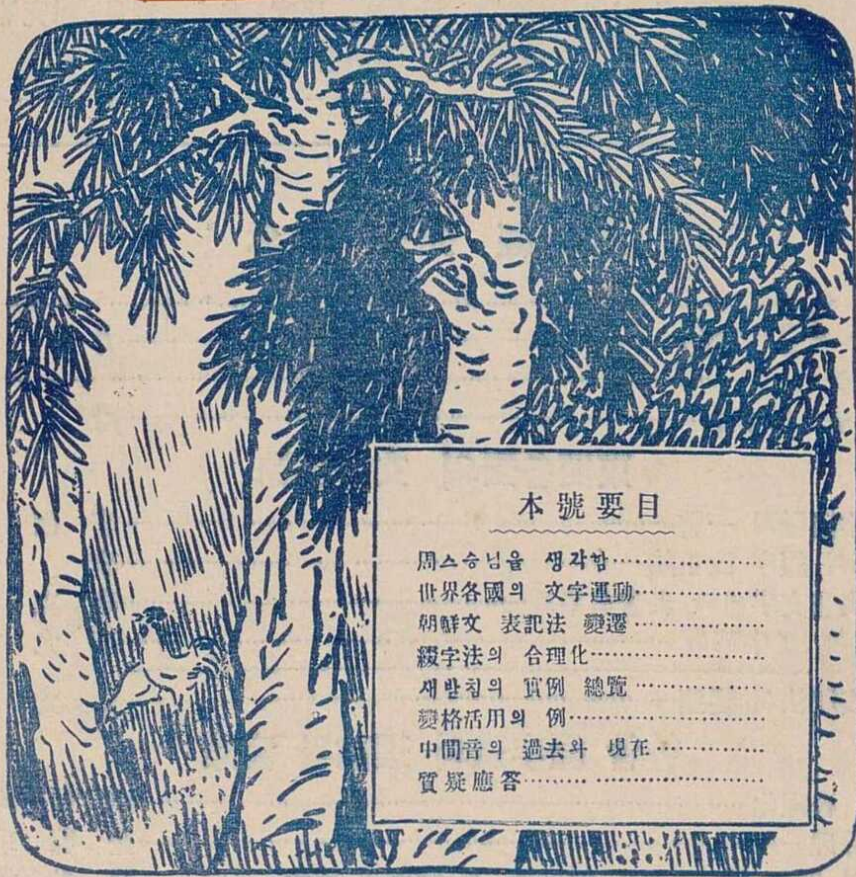 本號要目
周스승님을 생각함
世界各國의 文字運動
朝鮮文 表記法 變遷
綴字法의 合理化
새받침의 實例 總覽
變格活用의 例
中間音의 過去와 現在
質疑應答